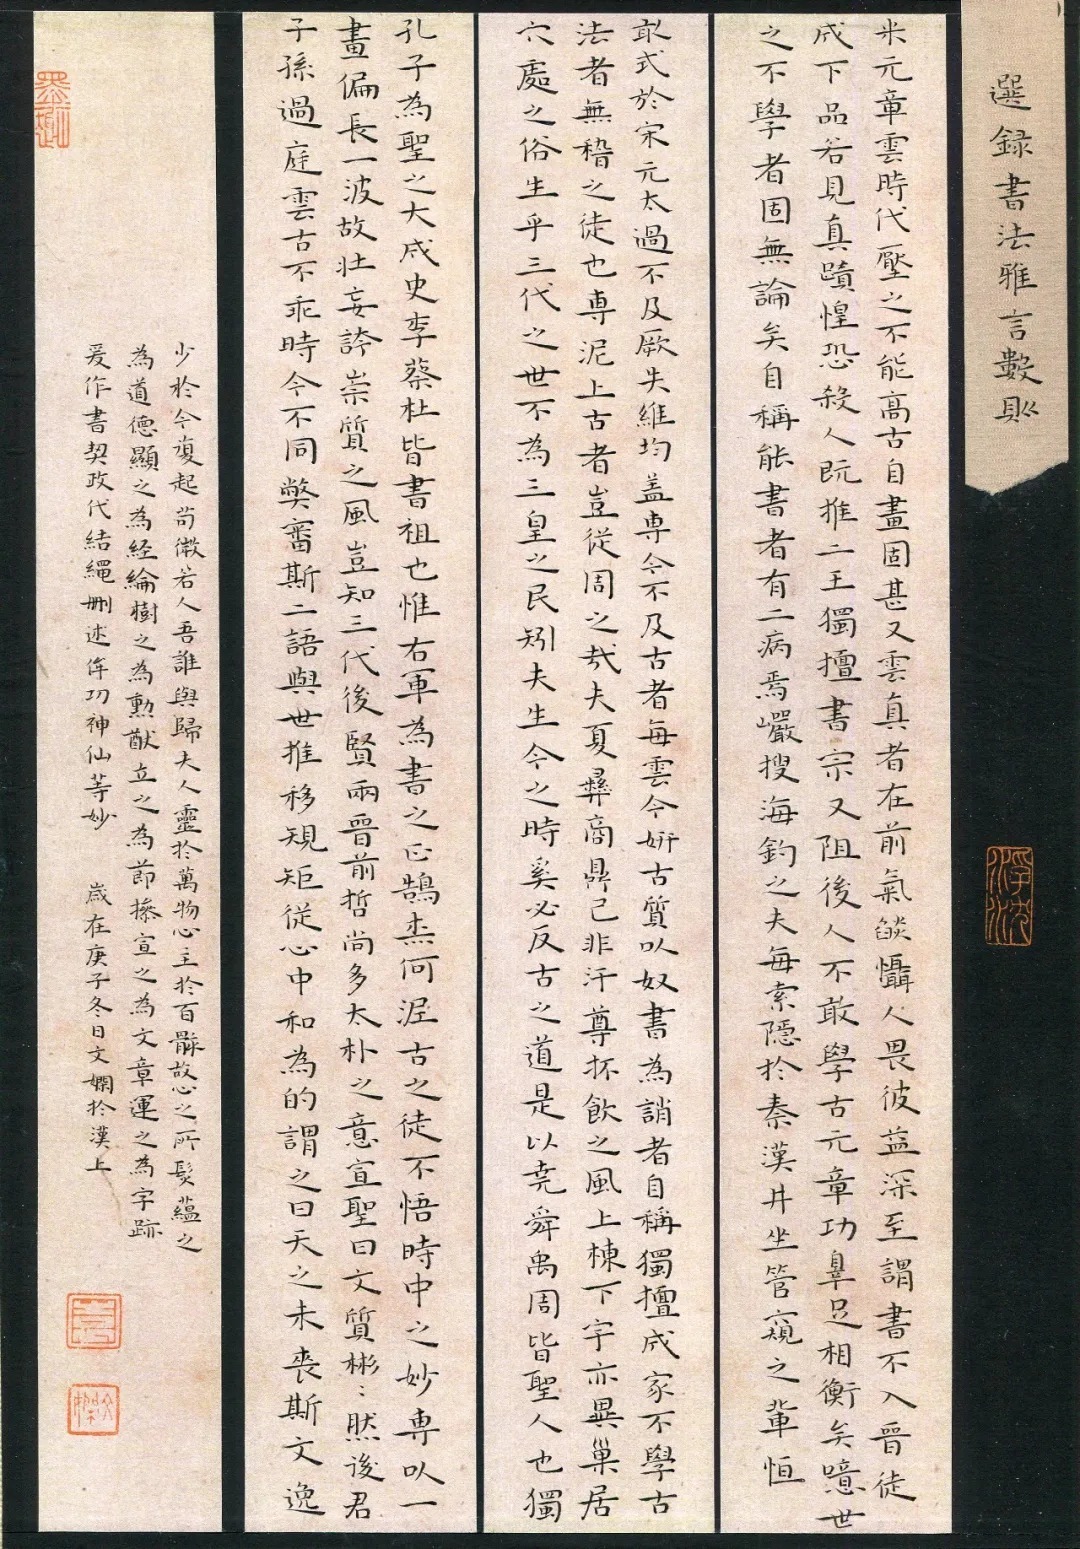 選録書法雅言數則
米元章雲時代壓之不能高古自畫固甚又雲真者在前氣燄懾人畏彼益深至謂書不入晉徒
成下品若見真蹟惶恐殺人既推二王獨擅書宗又阻後人不敢學古元章功辠足相衡矣噫世
之不學者固無論矣自稱能書者有二病焉巖搜海釣之夫每索隱於秦漢井坐管窺之輩恒
取式於宋元太過不及厥失維均蓋専今不及古者每雲今妍古質以奴書為誚者自稱獨擅成家不學古
法者無稽之徒也専泥上古者豈從周之哉夫夏彝商鼎已非汙尊抔飲之風上棟下宇亦異巢居
穴處之俗生乎三代之世不為三皇之民矧夫生今之時奚必反古之道是以堯舜禹周皆聖人也獨
孔子為聖之大成史李蔡杜皆書祖也惟右軍為書之正鵠柰何泥古之徒不悟時中之妙専以一
畫偏長一波故壯妄誇崇質之風豈知三代後賢兩晉前哲尚多太朴之意宣聖曰文質彬〻然後君
子孫過庭雲古不乖時今不同獘審斯二語與世推移規矩從心中和為的謂之曰天之未喪斯文逸
少於今復起苟微若人吾誰與歸夫人靈於萬物心主於百骸故心之所發蘊之
為道德顯之為経綸樹之為勲猷立之為節操宣之為文章運之為字跡
爰作書契政代結繩刪述侔功神仙等妙 歲在庚子冬日文嫻於漢上